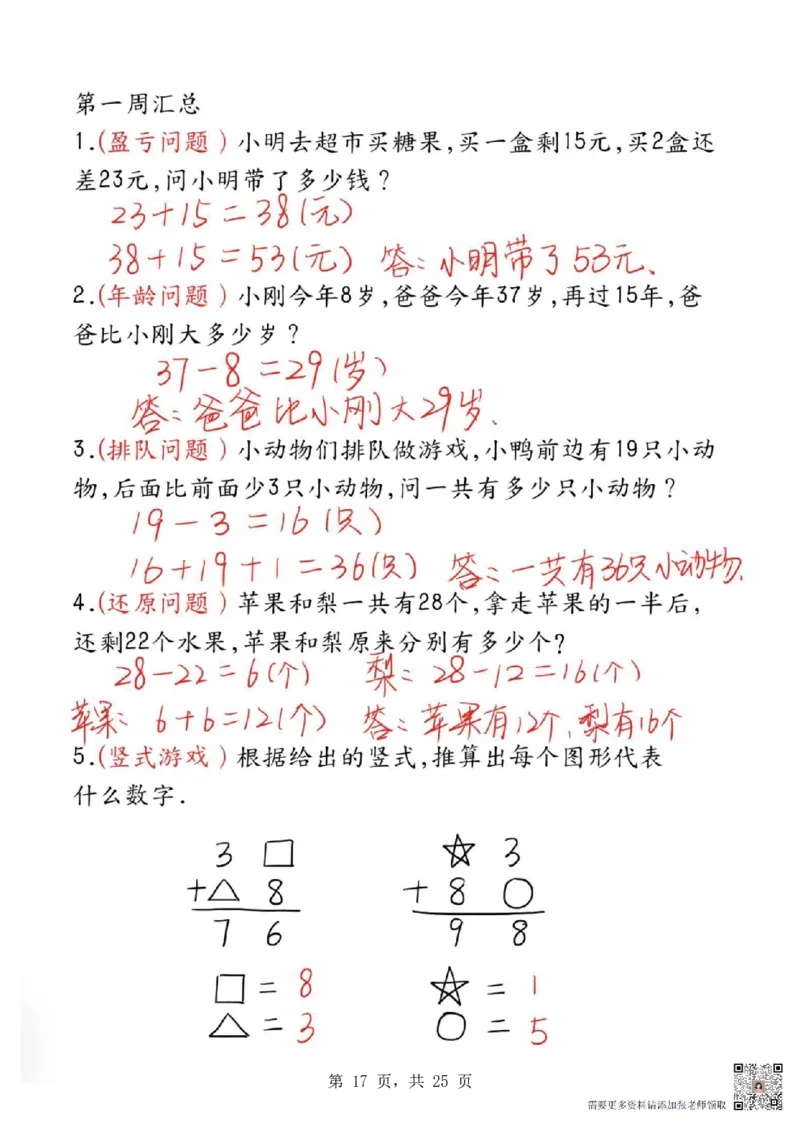 第一周汇总
1.(盈亏问题)小明去超市买糖果,买一盒剩15元,买2盒还
差23元,问小明带了多少钱?
23+15=38(元)
38+15=53(元) 答:小明带了53元.
2.(年龄问题)小刚今年8岁,爸爸今年37岁,再过15年,爸
爸比小刚大多少岁?
37-8=29(岁)
答:爸爸比小刚大29岁.
3.(排队问题)小动物们排队做游戏,小鸭前边有19只小动
物,后面比前面少3只小动物,问一共有多少只小动物?
19-3=16(只)
16+19+1=36(只) 答:一共有36只小动物.
4.(还原问题)苹果和梨一共有28个,拿走苹果的一半后,
还剩22个水果,苹果和梨原来分别有多少个?
28-22=6(个) 梨:28-12=16(个)
苹果:6+6=12(个) 答:苹果有12个,梨有16个
5.(竖式游戏)根据给出的竖式,推算出每个图形代表
什么数字.
3 □ ☆ 3
+△ 8 + 8 ○
7 6 9 8
□=8 ☆=1
△=3 ○=5
第 17 页,共 25 页
需要更多资料请添加张老师领取